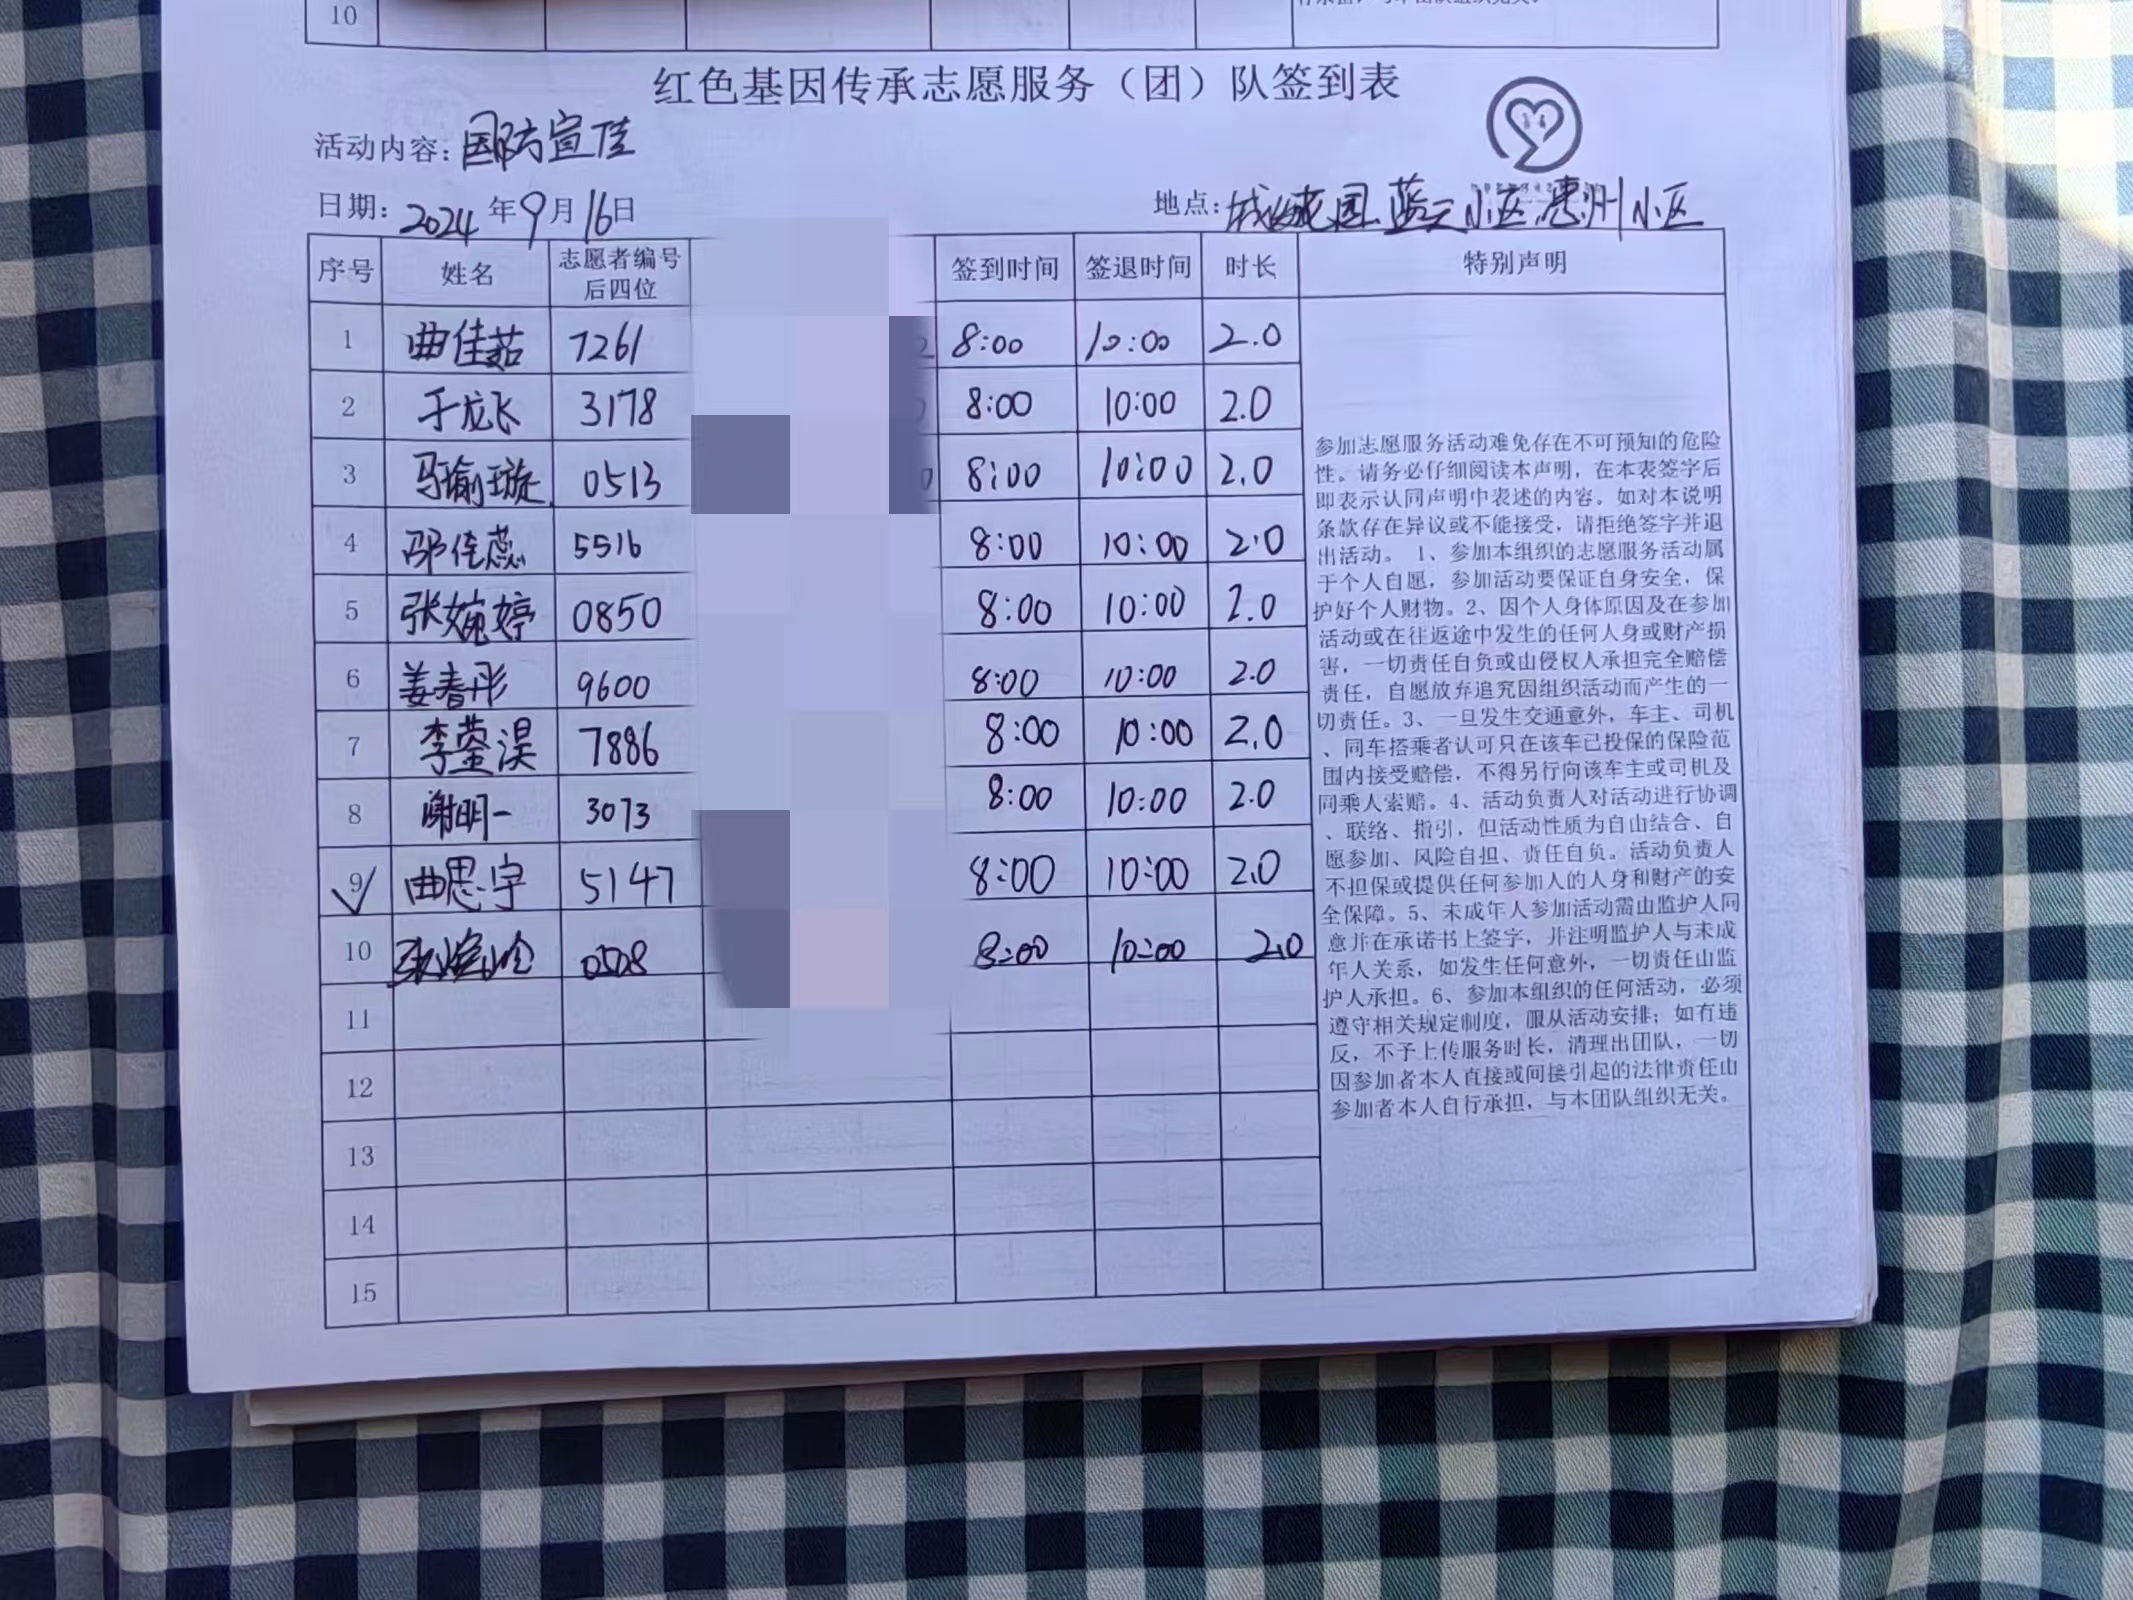 10
红色基因传承志愿服务（团）队签到表
活动内容：国防宣传
日期：2024年9月16日
地点：花园 蓝天小区 惠州小区
序号 姓名 志愿者编号后四位 签到时间 签退时间 时长 特别声明
1 曲佳茹 7261 8:00 10:00 2.0
2 于龙飞 3178 8:00 10:00 2.0
3 马瑜璇 0513 8:00 10:00 2.0
4 邵佳蕊 5516 8:00 10:00 2.0
5 张婉婷 0850 8:00 10:00 2.0
6 姜春彤 9600 8:00 10:00 2.0
7 李蓥淏 7886 8:00 10:00 2.0
8 谢明一 3073 8:00 10:00 2.0
9 曲思宇 5147 8:00 10:00 2.0
10 8:00 10:00 2.0
11
12
13
14
15
参加志愿服务活动难免存在不可预知的危险
性。请务必仔细阅读本声明，在本表签字后
即表示认同声明中表述的内容。如对本说明
条款存在异议或不能接受，请拒绝签字并退
出活动。 1、参加本组织的志愿服务活动属
于个人自愿，参加活动要保证自身安全，保
护好个人财物。2、因个人身体原因及在参加
活动或在往返途中发生的任何人身或财产损
害，一切责任自负或由侵权人承担完全赔偿
责任，自愿放弃追究因组织活动而产生的一
切责任。3、一旦发生交通意外，车主、司机
、同车搭乘者认可只在该车已投保的保险范
围内接受赔偿，不得另行向该车主或司机及
同乘人索赔。4、活动负责人对活动进行协调
、联络、指引，但活动性质为自由结合、自
愿参加、风险自担、责任自负。活动负责人
不担保或提供任何参加人的人身和财产的安
全保障。5、未成年人参加活动需由监护人同
意并在承诺书上签字，并注明监护人与未成
年人关系，如发生任何意外，一切责任由监
护人承担。6、参加本组织的任何活动，必须
遵守相关规定制度，服从活动安排；如有违
反，不予上传服务时长，清理出团队，一切
因参加者本人直接或间接引起的法律责任由
参加者本人自行承担，与本团队组织无关。